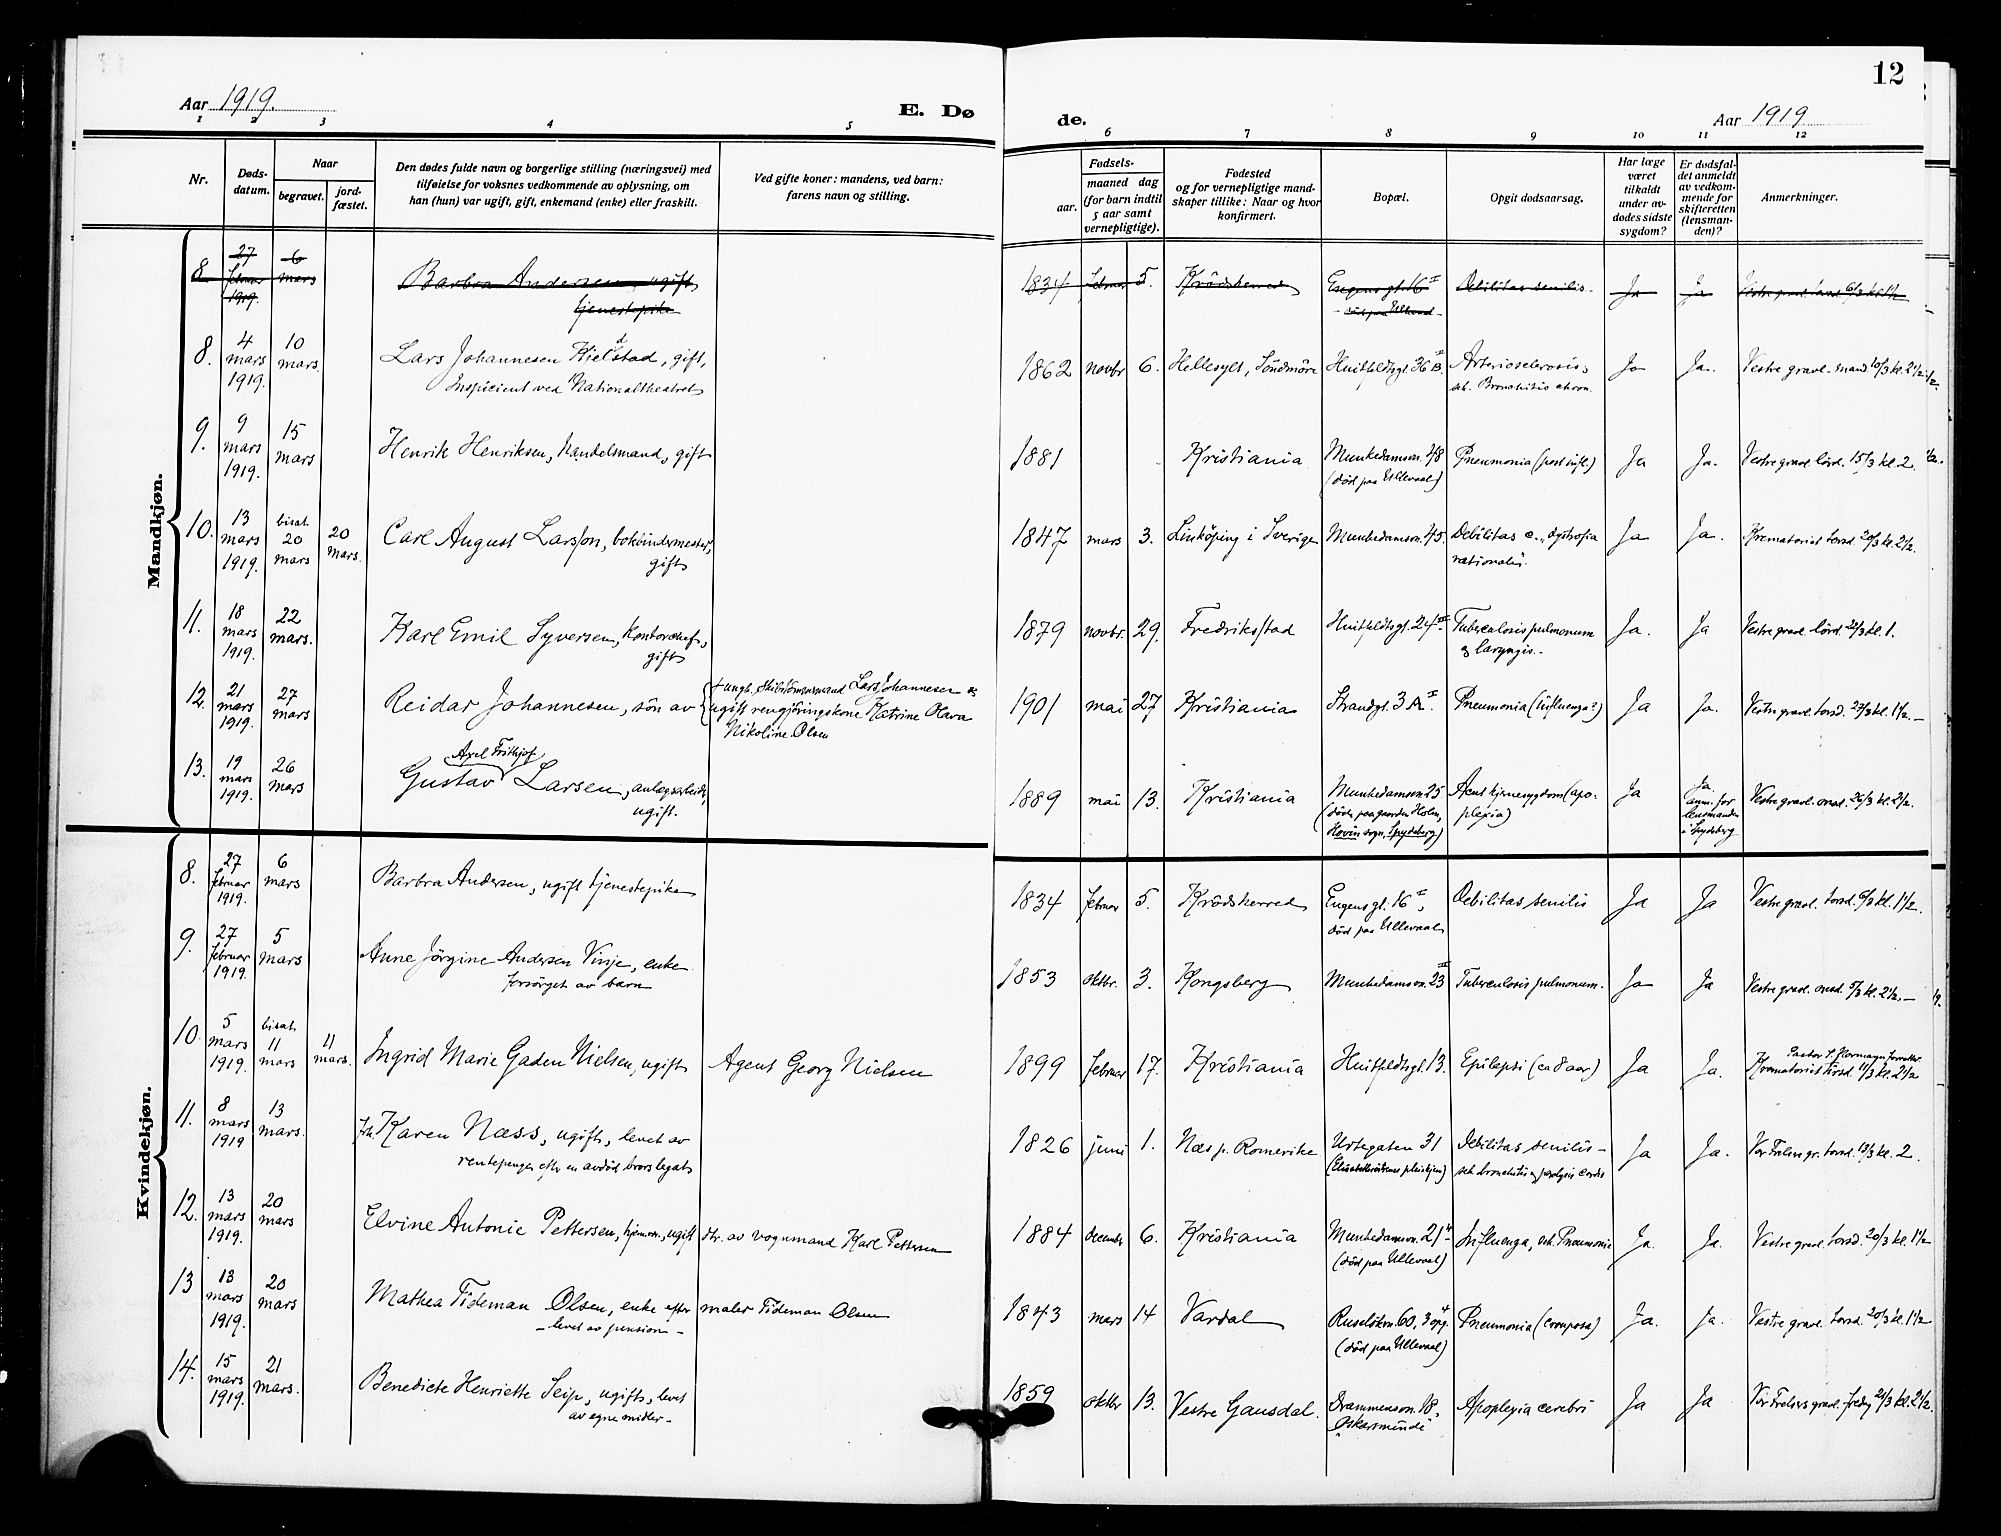 12
Aar 1919.
E. Dø
de.
Aar 1919
1 2 3 4 5 6 7 8 9 10 11 12
Nr.
Døds-
datum.
Naar
begravet.
jord-
fæstet.
Den dødes fulde navn og borgerlige stilling (næringsvei) med
tilføielse for voksnes vedkommende av oplysning, om
han (hun) var ugift, gift, enkemand (enke) eller fraskilt.
Ved gifte koner: mandens, ved barn:
farens navn og stilling.
Fødsels-
aar.
maaned dag
(for barn indtil
5 aar samt
vernepligtige).
Fødested
og for vernepligtige mand-
skaper tillike: Naar og hvor
konfirmert.
Bopæl.
Opgit dødsaarsag.
Har læge
været
tilkaldt
under av-
dødes sidste
sygdom?
Er dødsfal-
det anmeldt
av vedkom-
mende for
skifteretten
(lensman-
den)?
Anmerkninger.
Mandkjøn.
8. 27 februar 1919. 6 mars Barbra Andersen, ugift
tjenestepike
1834 februar 5. Krödsherred Eugens gt. 16 II
død paa Ullevaal
Debilitas senilis. Ja Ja Vestre gravl. torsd. 6/3 kl. 1½
8. 4 mars 1919. 10 mars. Lars Johannesen Kielstad, gift,
Inspicient ved Nationaltheatret
1862 novbr 6. Hellesylt, Söndmöre Huitfeldtsgt. 36 B. Arteriosclerosis,
sek. Bronchitis chron.
Ja Ja. Vestre gravl. mand. 10/3 kl. 2½.
9. 9 mars 1919. 15 mars Henrik Henriksen, handelsmand, gift
1881 Kristiania Munkedamsvn. 48
(död paa Ullevaal)
Pneumonia (post infl.) Ja Ja. Vestre gravl. lörd. 15/3 kl. 2.
10. 13 mars 1919. bisat 20 mars 20 mars. Carl August Larsson, bokbindermester,
gift
1847 mars 3. Linköping i Sverige Munkedamsvn. 45. Debilitas c. "dystrofia
rationalis". Ja Ja. Krematoriet torsd. 20/3 kl. 2½.
11. 18 mars 1919. 22 mars. Karl Emil Syversen, kontorchef,
gift
1879 novbr. 29. Fredriksstad Huitfeldtsgt. 24 III Tuberculosis pulmonum
og laryngis. Ja. Ja Vestre gravl. lörd. 22/3 kl. 1.
12. 21 mars 1919. 27 mars Reidar Johannesen, sön av
† ungk. skibstömmermand Lars Johannesen og
ugift rengjöringskone Katrine Olava
Nikoline Olsen
1901 mai 27 Kristiania Strandgt. 3 A II. Pneumonia (influenza?) Ja Ja. Vestre gravl. torsd. 27/3 kl. 1½.
13. 19 mars 1919. 26 mars Axel Frithjof
Gustav Larsen, anlægsarbeider,
ugift.
1889 mai 13. Kristiania Munkedamsvn. 25
(döde paa gaarden Holm,
Hovin sogn, Spydeberg)
Acut hjernesygdom (apo-
plexia) Ja Ja.
anm. for
lensmanden
i Spydeberg
Vestre gravl. onsd. 26/3 kl. 2½.
Kvindekjøn.
8. 27 februar 1919. 6 mars Barbra Andersen, ugift tjenestepike
1834 februar 5. Krödsherred Eugens gt. 16 I,
död paa Ullevaal
Debilitas senilis Ja Ja Vestre gravl. torsd. 6/3 kl. 1½.
9. 27 februar 1919. 5 mars Anne Jörgine Andersen Vinje, enke
forsörget av barn
1853 oktbr. 3. Kongsberg Munkedamsvn. 23 III Tuberculosis pulmonum. Ja Ja Vestre gravl. onsd. 5/3 kl. 2½.
10. 5 mars 1919. bisat 11 mars 11 mars. Ingrid Marie Gaden Nielsen, ugift Agent Georg Nielsen
1899 februar 17. Kristiania Huitfeldtsgt. 13. Epilepsi (ca 8 aar) Ja Ja. Pastor
Krematoriet tirsd. 11/3 kl. 2½
11. 8 mars 1919 13 mars. Frk. Karen Næss, ugift, levet av
rentepenger efter en avdöd brors legat
1826 juni 1. Næs p. Romerike Urtegaten 31
Debilitas senilis
sek. bronchitis og paralysis cordis
Ja Ja. Vor Frelsers gr. torsd. 13/3 kl. 2.
12. 13 mars 1919. 20 mars Elvine Antonie Pettersen, hjemmev., ugift dtr. av vognmand Karl Pettersen
1884 december 6. Kristiania Munkedamsvn. 21 4
(död paa Ullevaal)
Influenza, sek. Pneumonie Ja. Ja. Vestre gravl. torsd. 20/3 kl. 1½
13 13 mars 1919. 20 mars Mathea Tideman Olsen, enke efter maler Tideman Olsen
levet av pension
1843 mars 14 Vardal Ruselökvn. 60, 3 opg. 4
(död paa Ullevaal)
Pneumonia (crouposa) Ja. Ja. Vestre gravl. torsd. 20/3 kl. 1½
14. 15 mars 1919. 21 mars. Benedicte Henriette Seip, ugift, levet
av egne midler.
1859 oktbr 13. Vestre Gausdal. Drammensvn. 18,
"Oskarsminde"
Apoplexia cerebri Ja Ja Vor Frelsers gravl. fredag 21/3 kl. 2½.